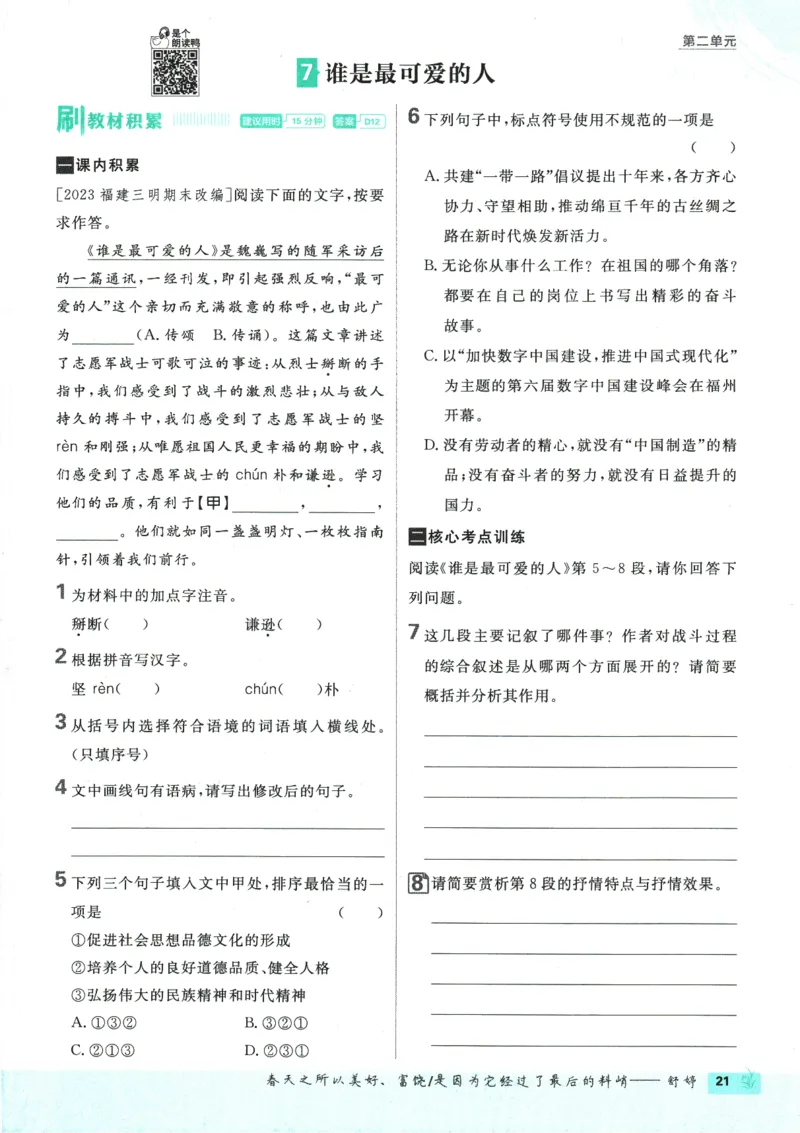 是个
朗读鸭
第二单元
7 谁是最可爱的人
刷教材积累 建议用时 15分钟 答案 D12
一 课内积累
[2023福建三明期末改编]阅读下面的文字,按要
求作答。
《谁是最可爱的人》是魏巍写的随军采访后
的一篇通讯,一经刊发,即引起强烈反响,“最可
爱的人”这个亲切而充满敬意的称呼,也由此广
为______(A.传颂 B.传诵)。这篇文章讲述
了志愿军战士可歌可泣的事迹:从烈士掰断的手
指中,我们感受到了战斗的激烈悲壮;从与敌人
持久的搏斗中,我们感受到了志愿军战士的坚
rèn 和刚强;从唯愿祖国人民更幸福的期盼中,我
们感受到了志愿军战士的 chún 朴和谦逊。学习
他们的品质,有利于【甲】______,______,
______。他们就如同一盏盏明灯、一枚枚指南
针,引领着我们前行。
1 为材料中的加点字注音。
掰断( ) 谦逊( )
2 根据拼音写汉字。
坚 rèn( ) chún( )朴
3 从括号内选择符合语境的词语填入横线处。
(只填序号)
4 文中画线句有语病,请写出修改后的句子。
5 下列三个句子填入文中甲处,排序最恰当的一
项是 ( )
①促进社会思想品德文化的形成
②培养个人的良好道德品质、健全人格
③弘扬伟大的民族精神和时代精神
A. ①③② B. ③②①
C. ②①③ D. ②③①
6 下列句子中,标点符号使用不规范的一项是
( )
A. 共建“一带一路”倡议提出十年来,各方齐心
协力、守望相助,推动绵亘千年的古丝绸之
路在新时代焕发新活力。
B. 无论你从事什么工作？在祖国的哪个角落？
都要在自己的岗位上书写出精彩的奋斗
故事。
C. 以“加快数字中国建设,推进中国式现代化”
为主题的第六届数字中国建设峰会在福州
开幕。
D. 没有劳动者的精心,就没有“中国制造”的精
品;没有奋斗者的努力,就没有日益提升的
国力。
二 核心考点训练
阅读《谁是最可爱的人》第 5～8 段,请你回答下
列问题。
7 这几段主要记叙了哪件事？作者对战斗过程
的综合叙述是从哪两个方面展开的？请简要
概括并分析其作用。
8 请简要赏析第 8 段的抒情特点与抒情效果。
春天之所以美好、富饶/是因为它经过了最后的料峭——舒婷 21